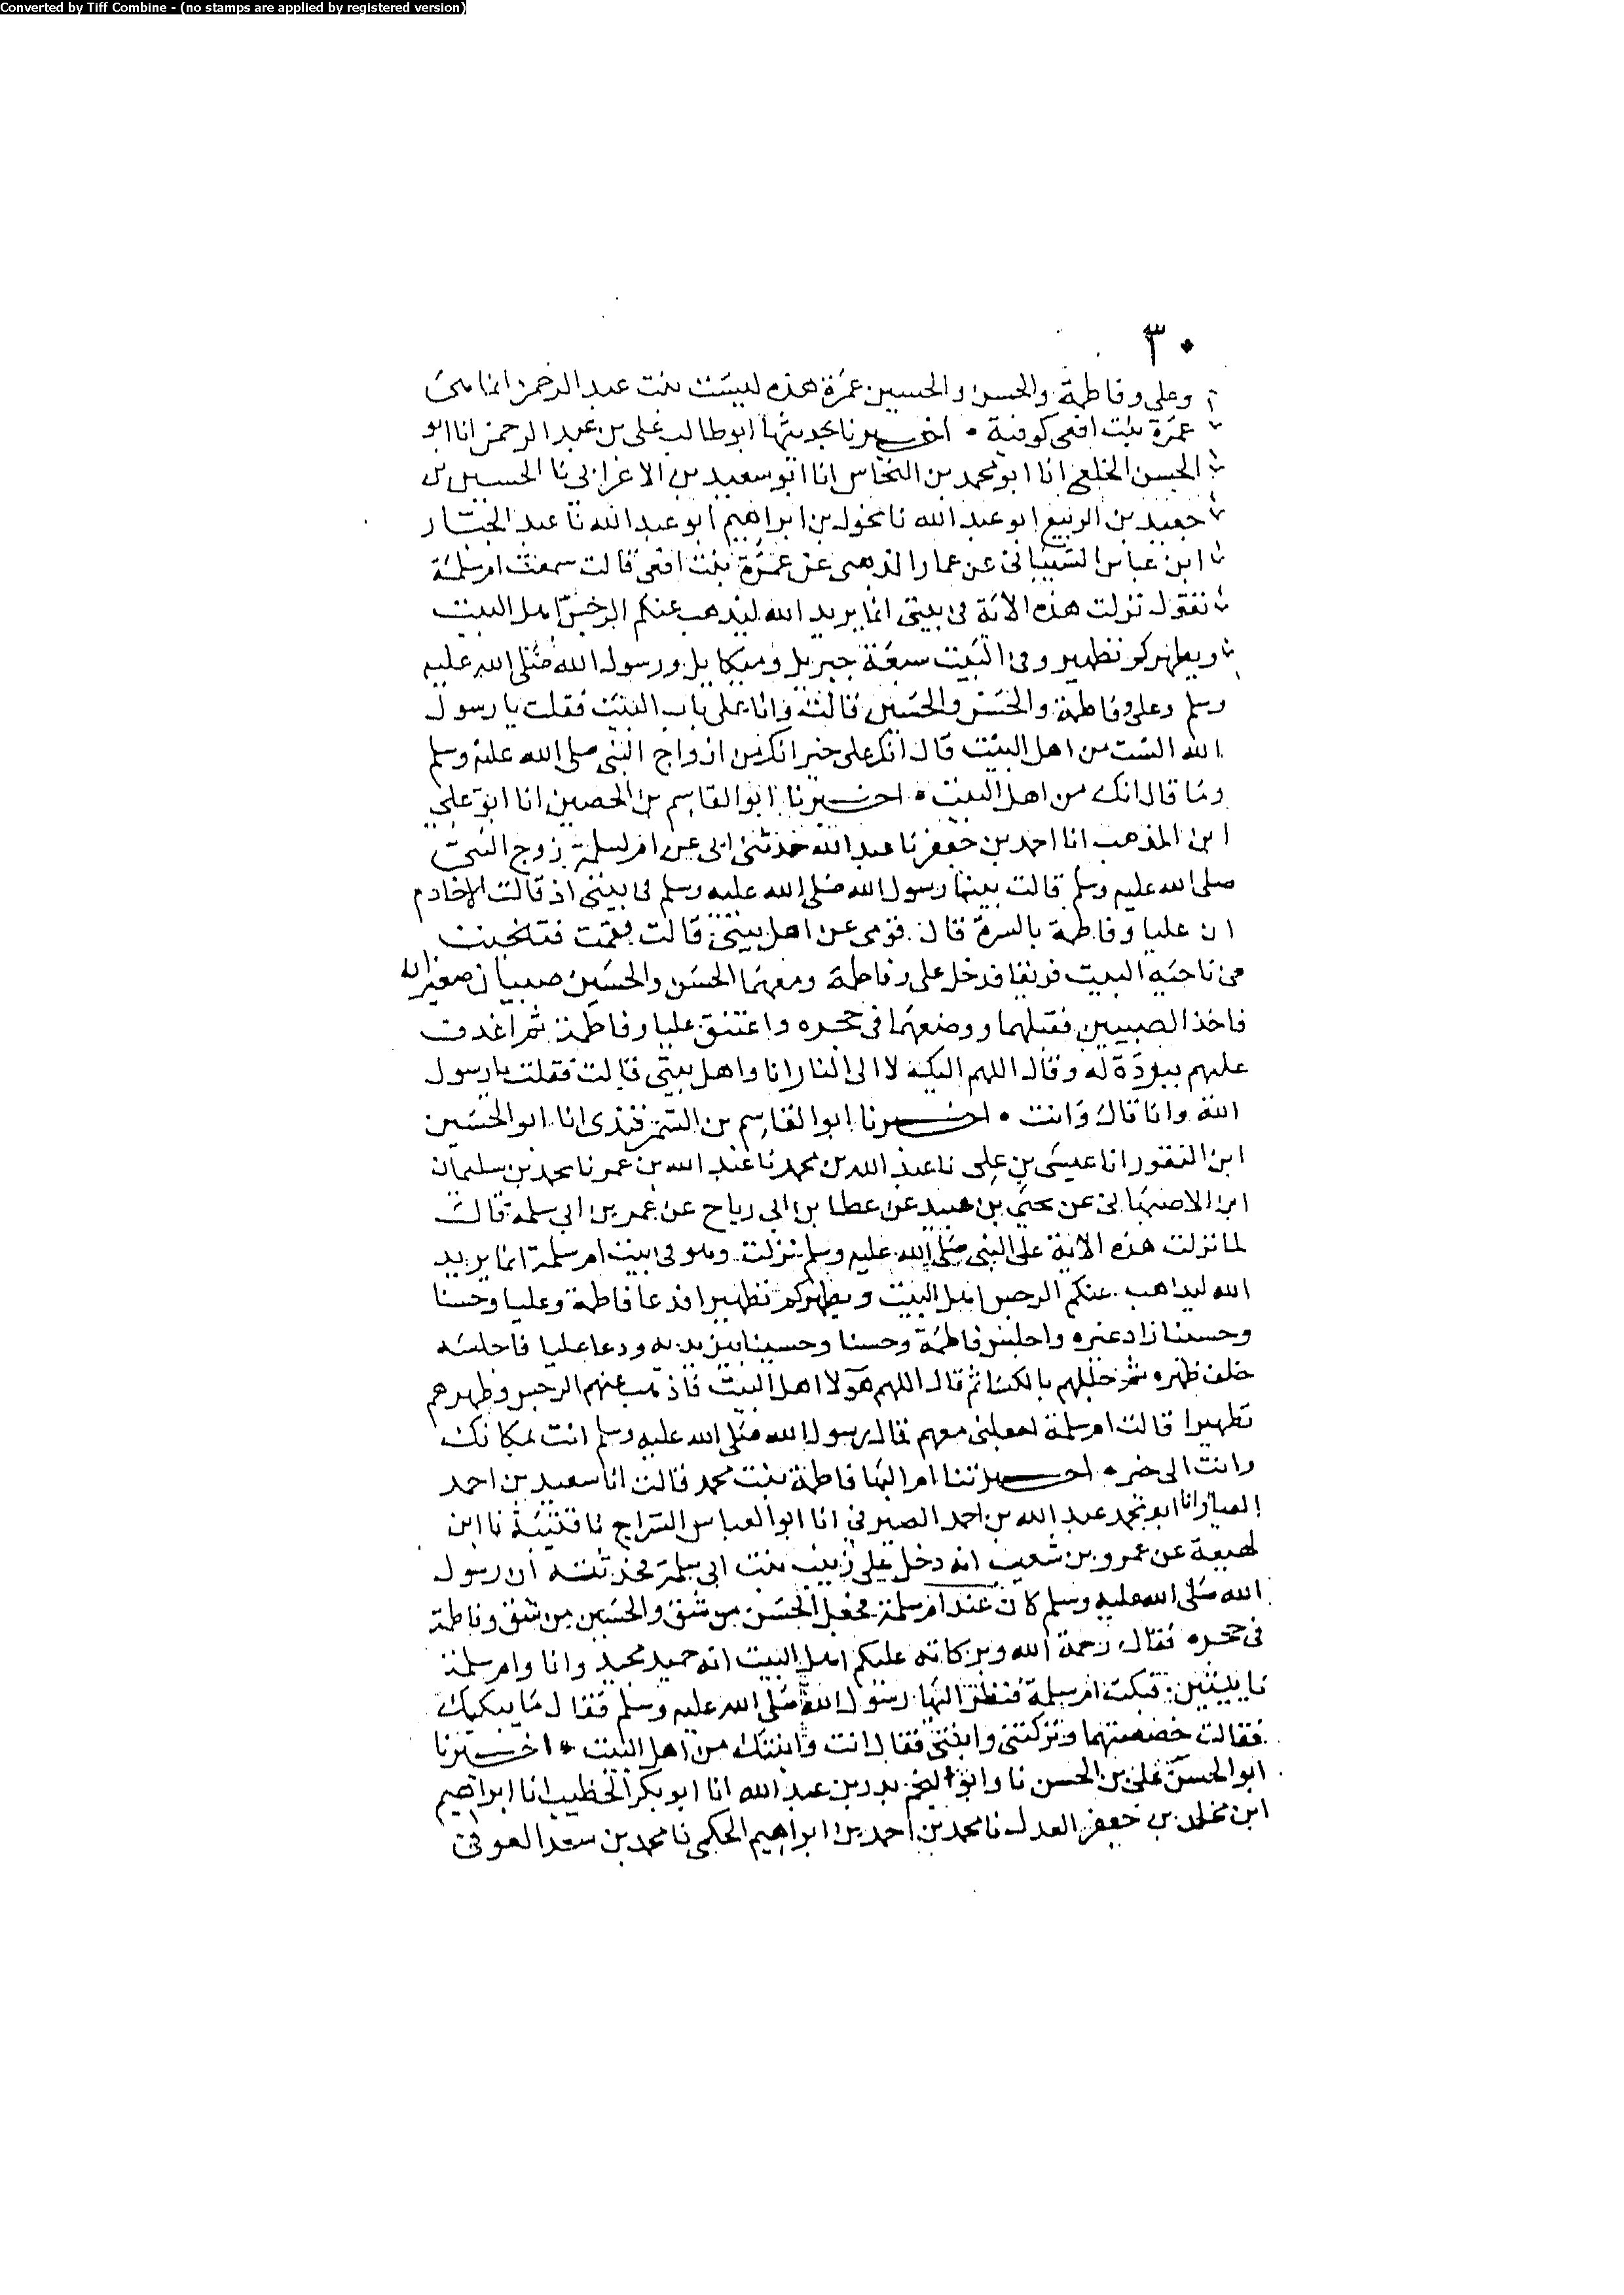 Converted by Tiff Combine - (no stamps are applied by registered version)
٣٠
وعلى وفاطمة والحسن والحسين عمرة هذه ليست بنت عبد الرحمن انما هى
عمرة بنت افعى كوفية • اخبرنا بحديثها ابو طالب على بن عبد الرحمن انا ابو
الحسن الخلعى انا ابو محمد بن النحاس انا ابو سعيد بن الاعرابى نا الحسين بن
جعيد بن الربيع ابو عبد الله نا مخول بن ابراهيم ابو عبد الله نا عبد الجبار
ابن عباس الشيبانى عن عمار الذهبى عن عمرة بنت افعى قالت سمعت ام سلمة
تقول نزلت هذه الاية فى بيتى انما يريد الله ليذهب عنكم الرجس اهل البيت
ويطهركم تطهير وفى البيت سبعة جبريل وميكايل ورسول الله صلى الله عليه
وسلم وعلى وفاطمة والحسن والحسين قالت وانا على باب البيت فقلت يا رسول
الله الست من اهل البيت قال انك على خير انك من ازواج النبى صلى الله عليه وسلم
وما قال انك من اهل البيت • اخبرنا ابو القاسم بن الحصين انا ابو على
ابن المذهب انا احمد بن جعفر نا عبد الله حدثنى ابى عن ام سلمة زوج النبى
صلى الله عليه وسلم قالت بينما رسول الله صلى الله عليه وسلم فى بيتى اذ قالت الخادم
ان عليا وفاطمة بالسدة قال قومى عن اهل بيتى قالت فقمت فتنحيت
فى ناحيه البيت قريبا فدخل على وفاطمة ومعهما الحسن والحسين صبيان صغيران
فاخذ الصبيين فقبلهما ووضعهما فى حجره واعتنق عليا وفاطمة ثم اغدف
عليهم ببردة له وقال اللهم اليك لا الى النار انا واهل بيتى قالت فقلت يا رسول
الله وانا قال وانت • اخبرنا ابو القاسم بن السمرقندى انا ابو الحسين
ابن النقور انا عيسى بن على نا عبد الله بن محمد نا عبد الله بن عمر نا محمد بن سليمان
ابن الاصبهانى عن يحيى بن عبيد عن عطا بن ابى رباح عن عمر بن ابى سلمة قال
لما نزلت هذه الاية على النبى صلى الله عليه وسلم نزلت وهو فى بيت ام سلمة انما يريد
الله ليذهب عنكم الرجس اهل البيت ويطهركم تطهيرا فدعا فاطمة وعليا وحسنا
وحسينا زاد غيره واجلس فاطمة وحسنا وحسينا بين يديه ودعا عليا فاجلسه
خلف ظهره ثم جللهم بالكسا ثم قال اللهم هولا اهل البيت فاذهب عنهم الرجس وطهرهم
تطهيرا قالت ام سلمة اجعلنى معهم قال رسول الله صلى الله عليه وسلم انت بمكانك
وانت الى خير • اخبرتنا ام البها فاطمة بنت محمد قالت انا سعيد بن احمد
العيار انا ابو محمد عبد الله بن احمد الصيرفى انا ابو العباس السراج نا قتيبة نا ابن
لهيعة عن عمرو بن شعيب انه دخل على زينب بنت ابى سلمة فحدثته ان رسول
الله صلى الله عليه وسلم كان عند ام سلمة فجعل الحسن من شق والحسين من شق وفاطمة
فى حجره فقال رحمة الله وبركاته عليكم اهل البيت انه حميد مجيد وانا وام سلمة
نايبتين فبكت ام سلمة فنظر اليها رسول الله صلى الله عليه وسلم فقال ما يبكيك
فقالت خصصتهما وتركتنى وابنتى فقال انت وابنتك من اهل البيت • اخبرنا
ابو الحسن على بن الحسن نا وابو النجم بدر بن عبد الله انا ابو بكر الخطيب انا ابراهيم
ابن مخلد بن جعفر العدل نا محمد بن احمد بن ابراهيم الحكمى نا محمد بن سعد العوفى